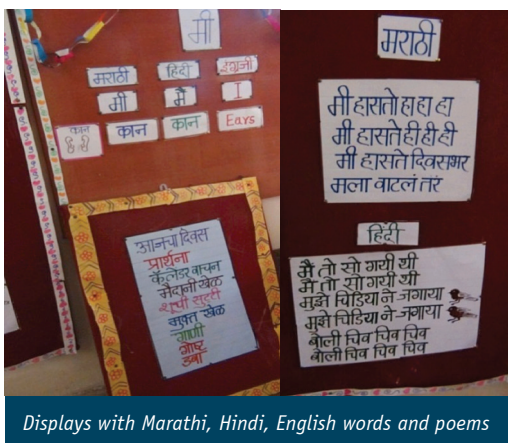 मी
मराठी हिंदी इंग्रजी
मी मै I
कान कान Ears
आजचा दिवस
प्रार्थना
कॅलेंडर वाचन
मैदानी खेळ
छोटी सुट्टी
मुक्त खेळ
गाणी
गोष्ट
डबा
मराठी
मी हासतो हा हा हा
मी हासते ही ही ही
मी हासते दिवसभर
मला वाटलं तरं
हिंदी
मैं तो सो गयी थी
मैं तो सो गयी थी
मुझे चिडिया ने जगाया
मुझे चिडिया ने जगाया
बोली चिव चिव चिव
बोली चिव चिव चिव
Displays with Marathi, Hindi, English words and poems